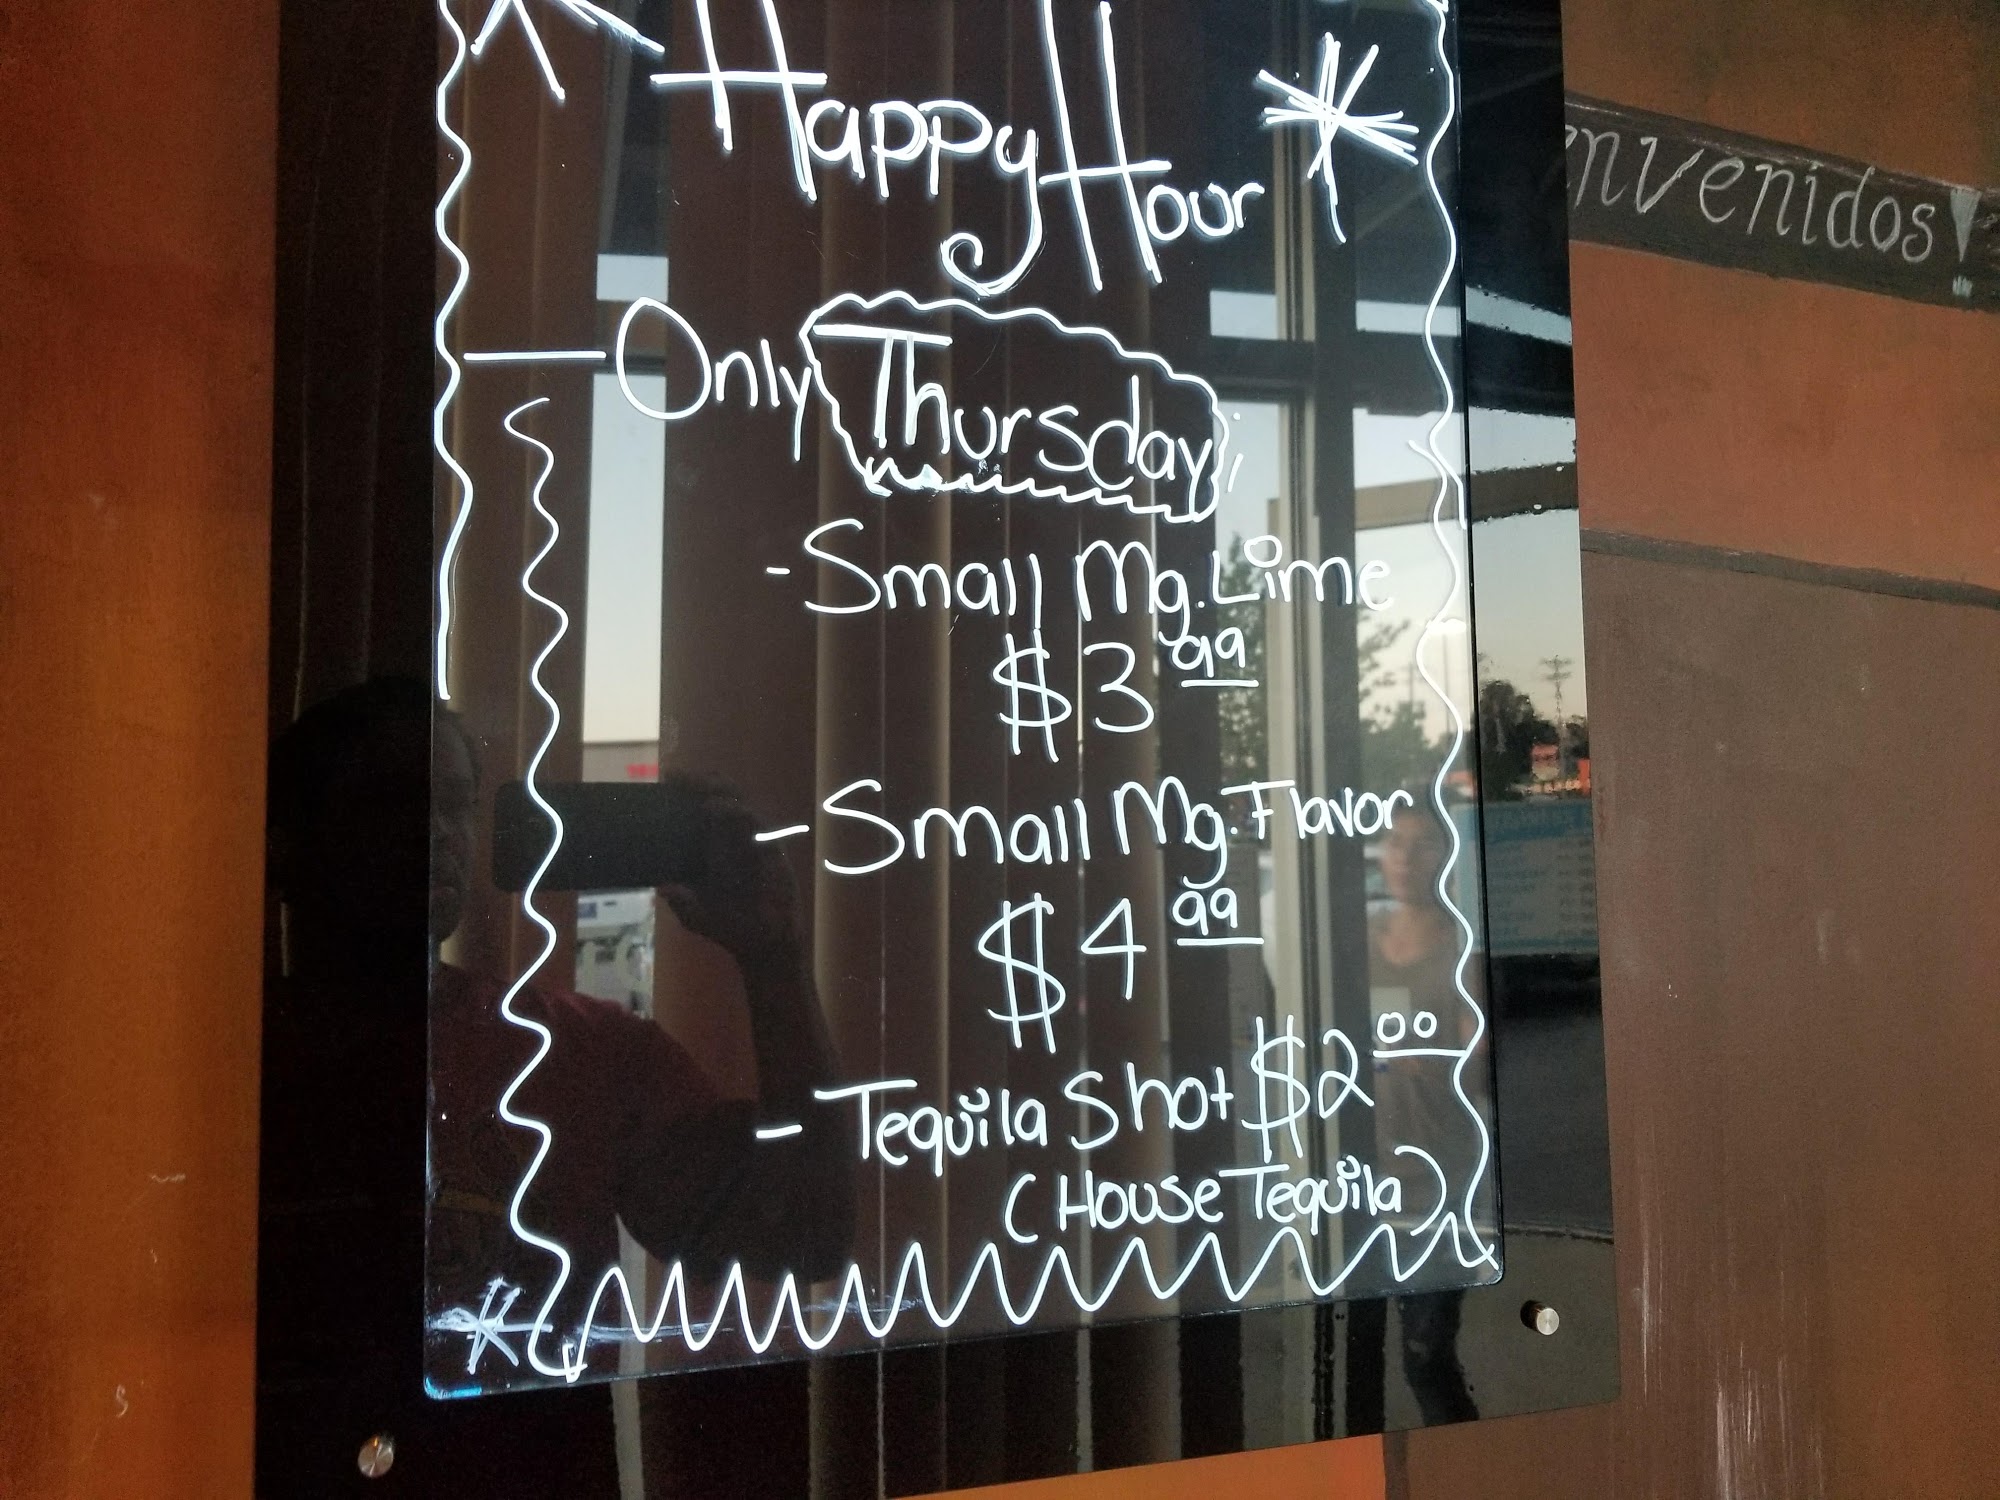 Happy Hour
Only Thursday
- Small Mg. Lime
$3.99
- Small Mg. Flavor
$4.99
- Tequila Shot $2.00
(House Tequila)
envenidos!